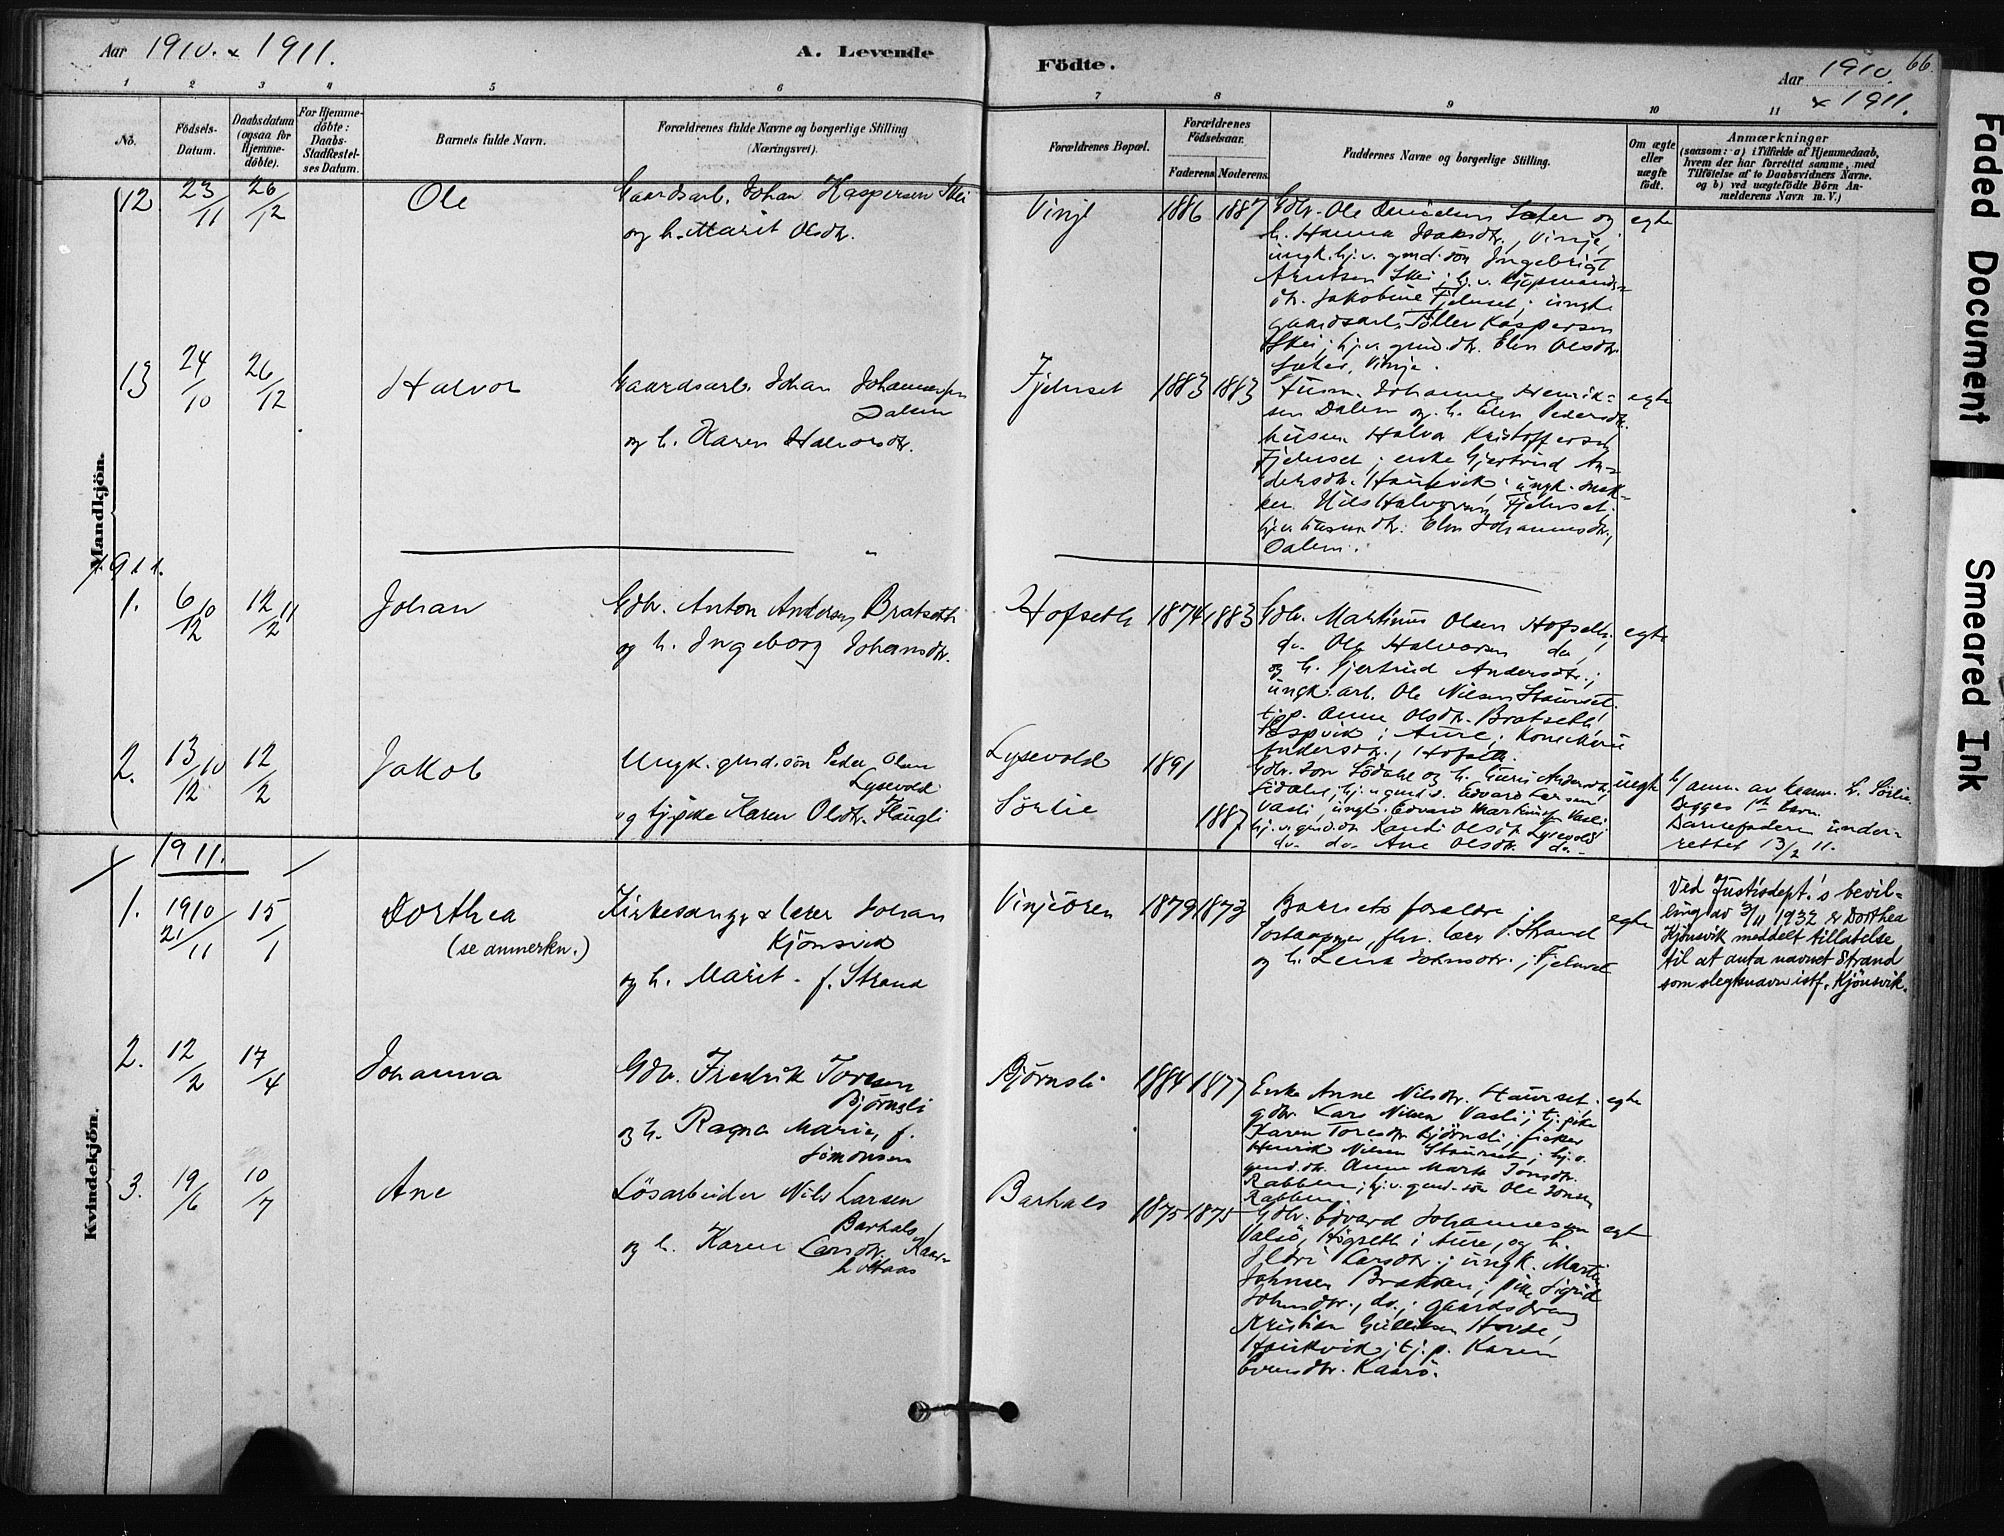 Aar 1910. & 1911.
A. Levende
Födte.
Aar 1910. & 1911.
66.
1 2 3 4 5 6 7 8 9 10 11
No.
Födsels-Datum.
Daabsdatum (ogsaa for Hjemme-döbte).
For Hjemme-döbte: Daabs-Stadfæstel-ses Datum.
Barnets fulde Navn.
Forældrenes fulde Navne og borgerlige Stilling
(Næringsvei).
Forældrenes Bopæl.
Forældrenes Födselsaar.
Faderens. Moderens.
Faddernes Navne og borgerlige Stilling.
Om ægte eller uægte födt.
Anmærkninger
(saasom: a) i Tilfælde af Hjemmedaab,
hvem der har forrettet samme, med
Tilföielse af to Daabsvidners Navne.
og b) ved uægtefödte Börn An-
melderens Navn m. V.)
Mandkjön.
12 23/11 26/12
Ole
Gaardsarb. Johan Kaspersen Skei
og h. Marit Olsdtr.
Vinje
1886 1887
Gbr. Ole
og
h. Hanna Isaksdtr., Vinje,
ungk. hj. v. gmd. sön Ingebrigt
Arntsen Skei; hj. v. Kjöpmands-
dtr. Jakobine Fjelnset; ungk.
gaardsarb. Töller Kaspersen
Skei; hj. v. gmd. dtr. Elen Olsdtr.
Sæter, Vinje.
egte
13 24/10 26/12
Halvor
Gaardsarb. Johan Johannesen
Dalem
og h. Karen Halvorsdtr.
Fjelnset
1883 1883
Husm. Johannes Henrik-
sen Dalem og h. Elen Pedersdtr.
husm. Halvor Kristoffersen
Fjelnset; enke Gjertrud An-
dersdtr. Haukvik; ungk. snek-
ker Nils Halvorsen, Fjelnset.
hj. v. husm. dtr. Elen Johannesdtr.,
Dalem.
egte
1911.
1. 6/12 10 12/2 11
Johan
Gbr. Anton Andersen Bratseth
og h. Ingeborg Johansdtr.
Hofseth
1874 1883
Gbr. Martinus Olsen Hofseth;
do. Ole Halvorsen do,
og h. Gjertrud Andersdtr.;
ungk. arb. Ole Nilsen Staurset.
tj. p. Anne Olsdtr. Bratseth,
Espvik i Aure;
Andersdtr., Hofseth.
egte
2. 13/12 10 12/2
Jakob
Ungk. gmd. sön Peder Olsen
Lysevold
og tj. pike Karen Olsdtr. Haugli
Lysevold
Sørlie
1891
1887
Gbr. Jon Södahl og h. Guri Andersdtr.
Södahl; hj. v. gmd. s. Edvard Larsen
Vasli; ungk. Edvard Martinsen Vasli
hj. v. gmd. dtr. Randi Olsdtr. Lysevold
do. do. Ane Olsdtr. do.
uegte
Begges 1ste barn.
Barnefaderen under-
rettet 13/2 11.
1911.
Kvindekjön.
1. 1910 21/11 15/1
Dorthea
(se anmerkn.)
Kirkesanger & lærer Johan
Kjönsvik
og h. Marit f. Strand
Vinjeören
1879 1873
Barnets foreldre;
Postaapner, fhv. lærer J. Strand
og h. Lena Johnsdtr.; Fjelnset
egte
Ved Justisdept.'s bevil-
ling av 3/11 1932 er Dorthea
Kjönsvik meddelt tillatelse
til at anta navnet Strand
som slegtsnavn istf. Kjönsvik.
2. 12/2 17/4
Johanna
Gbr. Fredrik Toresen
Bjørnsli
og h. Ragna Marie, f.
Simonsen
Bjørnsli
1884 1877
Enke Anne Nilsdtr. Haurset.
gbr. Lars Nilsen Vasli; tj. pike
Karen Toresdtr. Bjørnsli; fisker
Henrik Nilsen Staurset; hj. v.
gmd. dtr. Anne Marta Jonsdtr.
Rabben; hj. v. gmd. sön Ole Jonsen
Rabben.
egte
3. 19/6 10/7
Ane
Lösarbeider Nils Larsen
Barhals
og h. Karen Larsdtr.
Barhals
1875 1875
Gbr. Edvard Johannesen
Valsö, Högseth i Aure, og h.
Ildri Larsdtr.; ungk. Martin
Johnsen Brakken; pike Sigrid
Johnsdtr., do.; gaardsdreng
Kristian Gulliksen Hovde,
Haukvik; tj. p. Karen
Evensdtr. Kaarö.
egte
Faded Document
Smeared Ink